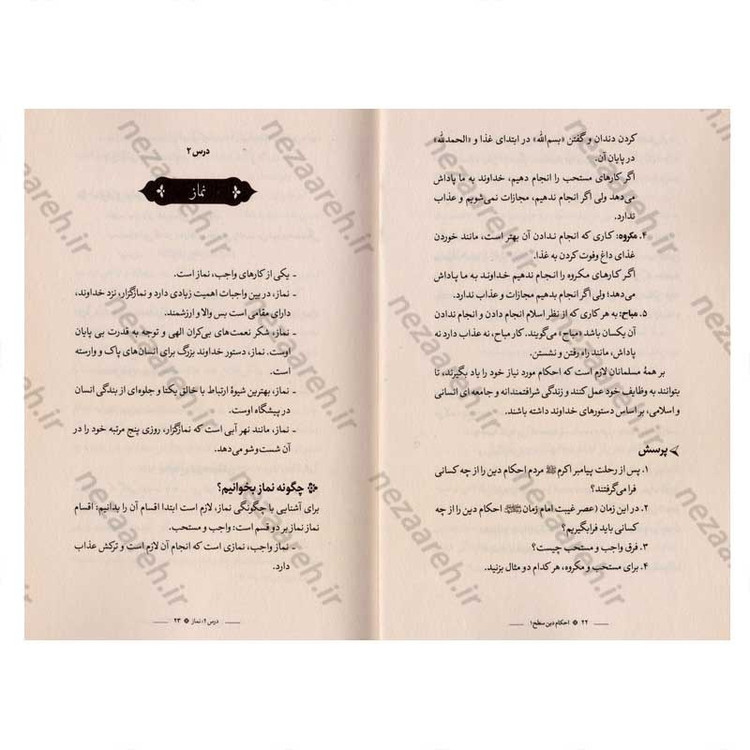 کردن دندان و گفتن «بسم‌الله» در ابتدای غذا و «الحمدلله»
در پایان آن.
اگر کارهای مستحب را انجام دهیم، خداوند به ما پاداش
می‌دهد ولی اگر انجام ندهیم، مجازات نمی‌شویم و عذاب
ندارد.
۴. مکروه: کاری که انجام ندادن آن بهتر است، مانند خوردن
غذای داغ وفوت کردن به غذا.
اگر کارهای مکروه را انجام ندهیم خداوند به ما پاداش
می‌دهد؛ ولی اگر انجام بدهیم مجازات و عذاب ندارد.
۵. مباح: به هر کاری که از نظر اسلام انجام دادن و انجام ندادن
آن یکسان باشد «مباح» می‌گویند. کار مباح، نه عذاب دارد نه
پاداش، مانند راه رفتن و نشستن.
بر همهٔ مسلمانان لازم است که احکام مورد نیاز خود را یاد بگیرند، تا
بتوانند به وظایف خود عمل کنند و زندگی شرافتمندانه و جامعه ای انسانی
و اسلامی، بر اساس دستورهای خداوند داشته باشند.
پرسش
۱. پس از رحلت پیامبر اکرم ﷺ مردم احکام دین را از چه کسانی
فرا می‌گرفتند؟
۲. در این زمان (عصر غیبت امام زمان) احکام دین را از چه
کسانی باید فرابگیریم؟
۳. فرق واجب و مستحب چیست؟
۴. برای مستحب و مکروه، هر کدام دو مثال بزنید.
۲۲ احکام دین سطح۱
درس ۲
نماز
- یکی از کارهای واجب، نماز است.
- نماز، در بین واجبات اهمیت زیادی دارد و نمازگزار، نزد خداوند،
دارای مقامی است بس والا و ارزشمند.
- نماز، شکر نعمت‌های بی‌کران الهی و توجه به قدرت بی پایان
اوست. نماز، دستور خداوند بزرگ برای انسان‌های پاک و وارسته
است.
- نماز، بهترین شیوهٔ ارتباط با خالق یکتا و جلوه‌ای از بندگی انسان
در پیشگاه اوست.
- نماز، مانند نهر آبی است که نمازگزار، روزی پنج مرتبه خود را در
آن شست‌وشو می‌دهد.
چگونه نماز بخوانیم؟
برای آشنایی با چگونگی نماز، لازم است ابتدا اقسام آن را بدانیم: اقسام
نماز نماز بر دو قسم است: واجب و مستحب.
- نماز واجب، نمازی است که انجام آن لازم است و ترکش عذاب
دارد.
درس ۲: نماز ۲۳
nezaareh.ir
nezaareh.ir
nezaareh.ir
nezaareh.ir
nezaareh.ir
nezaareh.ir